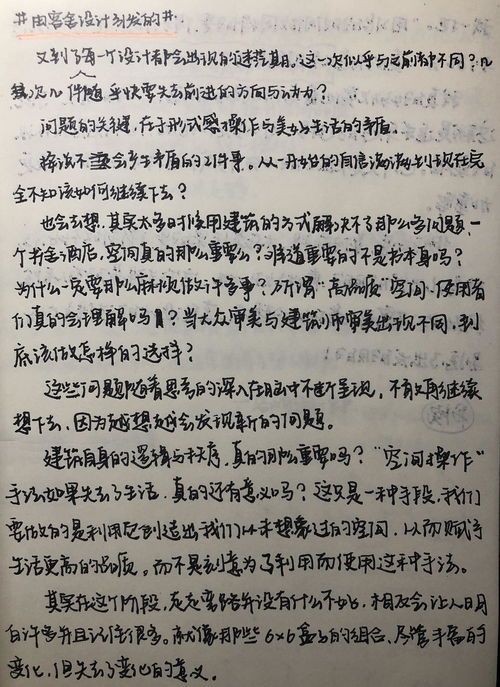 #由宿舍设计引发的#
又到了每一个设计都会出现的迷茫期。这一次似乎与之前都不同？几
幾次几乎快要失去前进的方向与动力？
问题的关键，在于形式感操作与美好生活的矛盾。
按说不会产生矛盾的2件事。从一开始的自信满满到现在完
全不知该如何继续下去？
也会去想，其实太多时候用建筑的方式解决不了那么多问题，一
个书舍酒店，空间真的那么重要么？难道重要的不是书本身吗？
为什么一定要那么麻烦做许多事？所谓“高品质”空间，使用者
们真的会理解吗？当大众审美与建筑师审美出现不同，到
底该做怎样的选择？
这些问题随着思考的深入在脑中不断呈现，不敢再继续
想下去，因为越想越会发现新的问题。
建筑自身的逻辑与秩序，真的那么重要吗？“空间操作”
手法如果失去了生活，真的还有意义吗？这只是一种手段，我们
要做的是利用它创造出我们从未想象过的空间，从而赋予
生活更高的品质。而不是刻意为了利用而使用这种手法。
其实在这个阶段，走走弯路并没有什么不好，相反会让人明
白许多并且记住很多。就像那些6×6盒子的组合，尽管丰富的
变化，但失去了变化的意义。